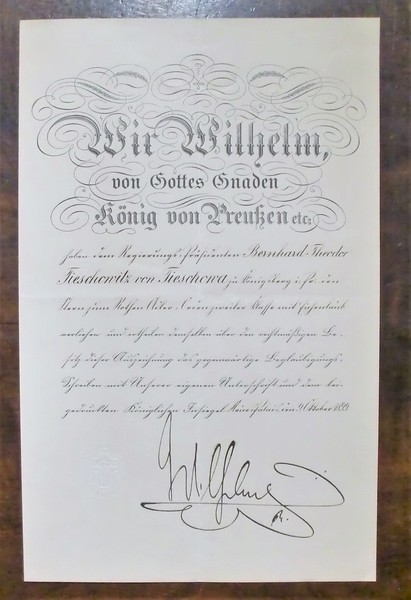 Wir Wilhelm,
von Gottes Gnaden
König von Preußen etc:
haben dem Regierungs-Präsidenten Bernhard Theodor
Tieschowitz von Tieschowa zu Königsberg i. Pr. den
Stern zum Rothen Adler-Orden zweiter Klasse mit Eichenlaub
verliehen und ertheilen demselben über den rechtmäßigen Be-
sitz dieser Auszeichnung das gegenwärtige Beglaubigungs-
Schreiben mit Unserer eigenen Unterschrift und dem bei-
gedruckten Königlichen Insiegel. den 9. October
Wilhelm
R.